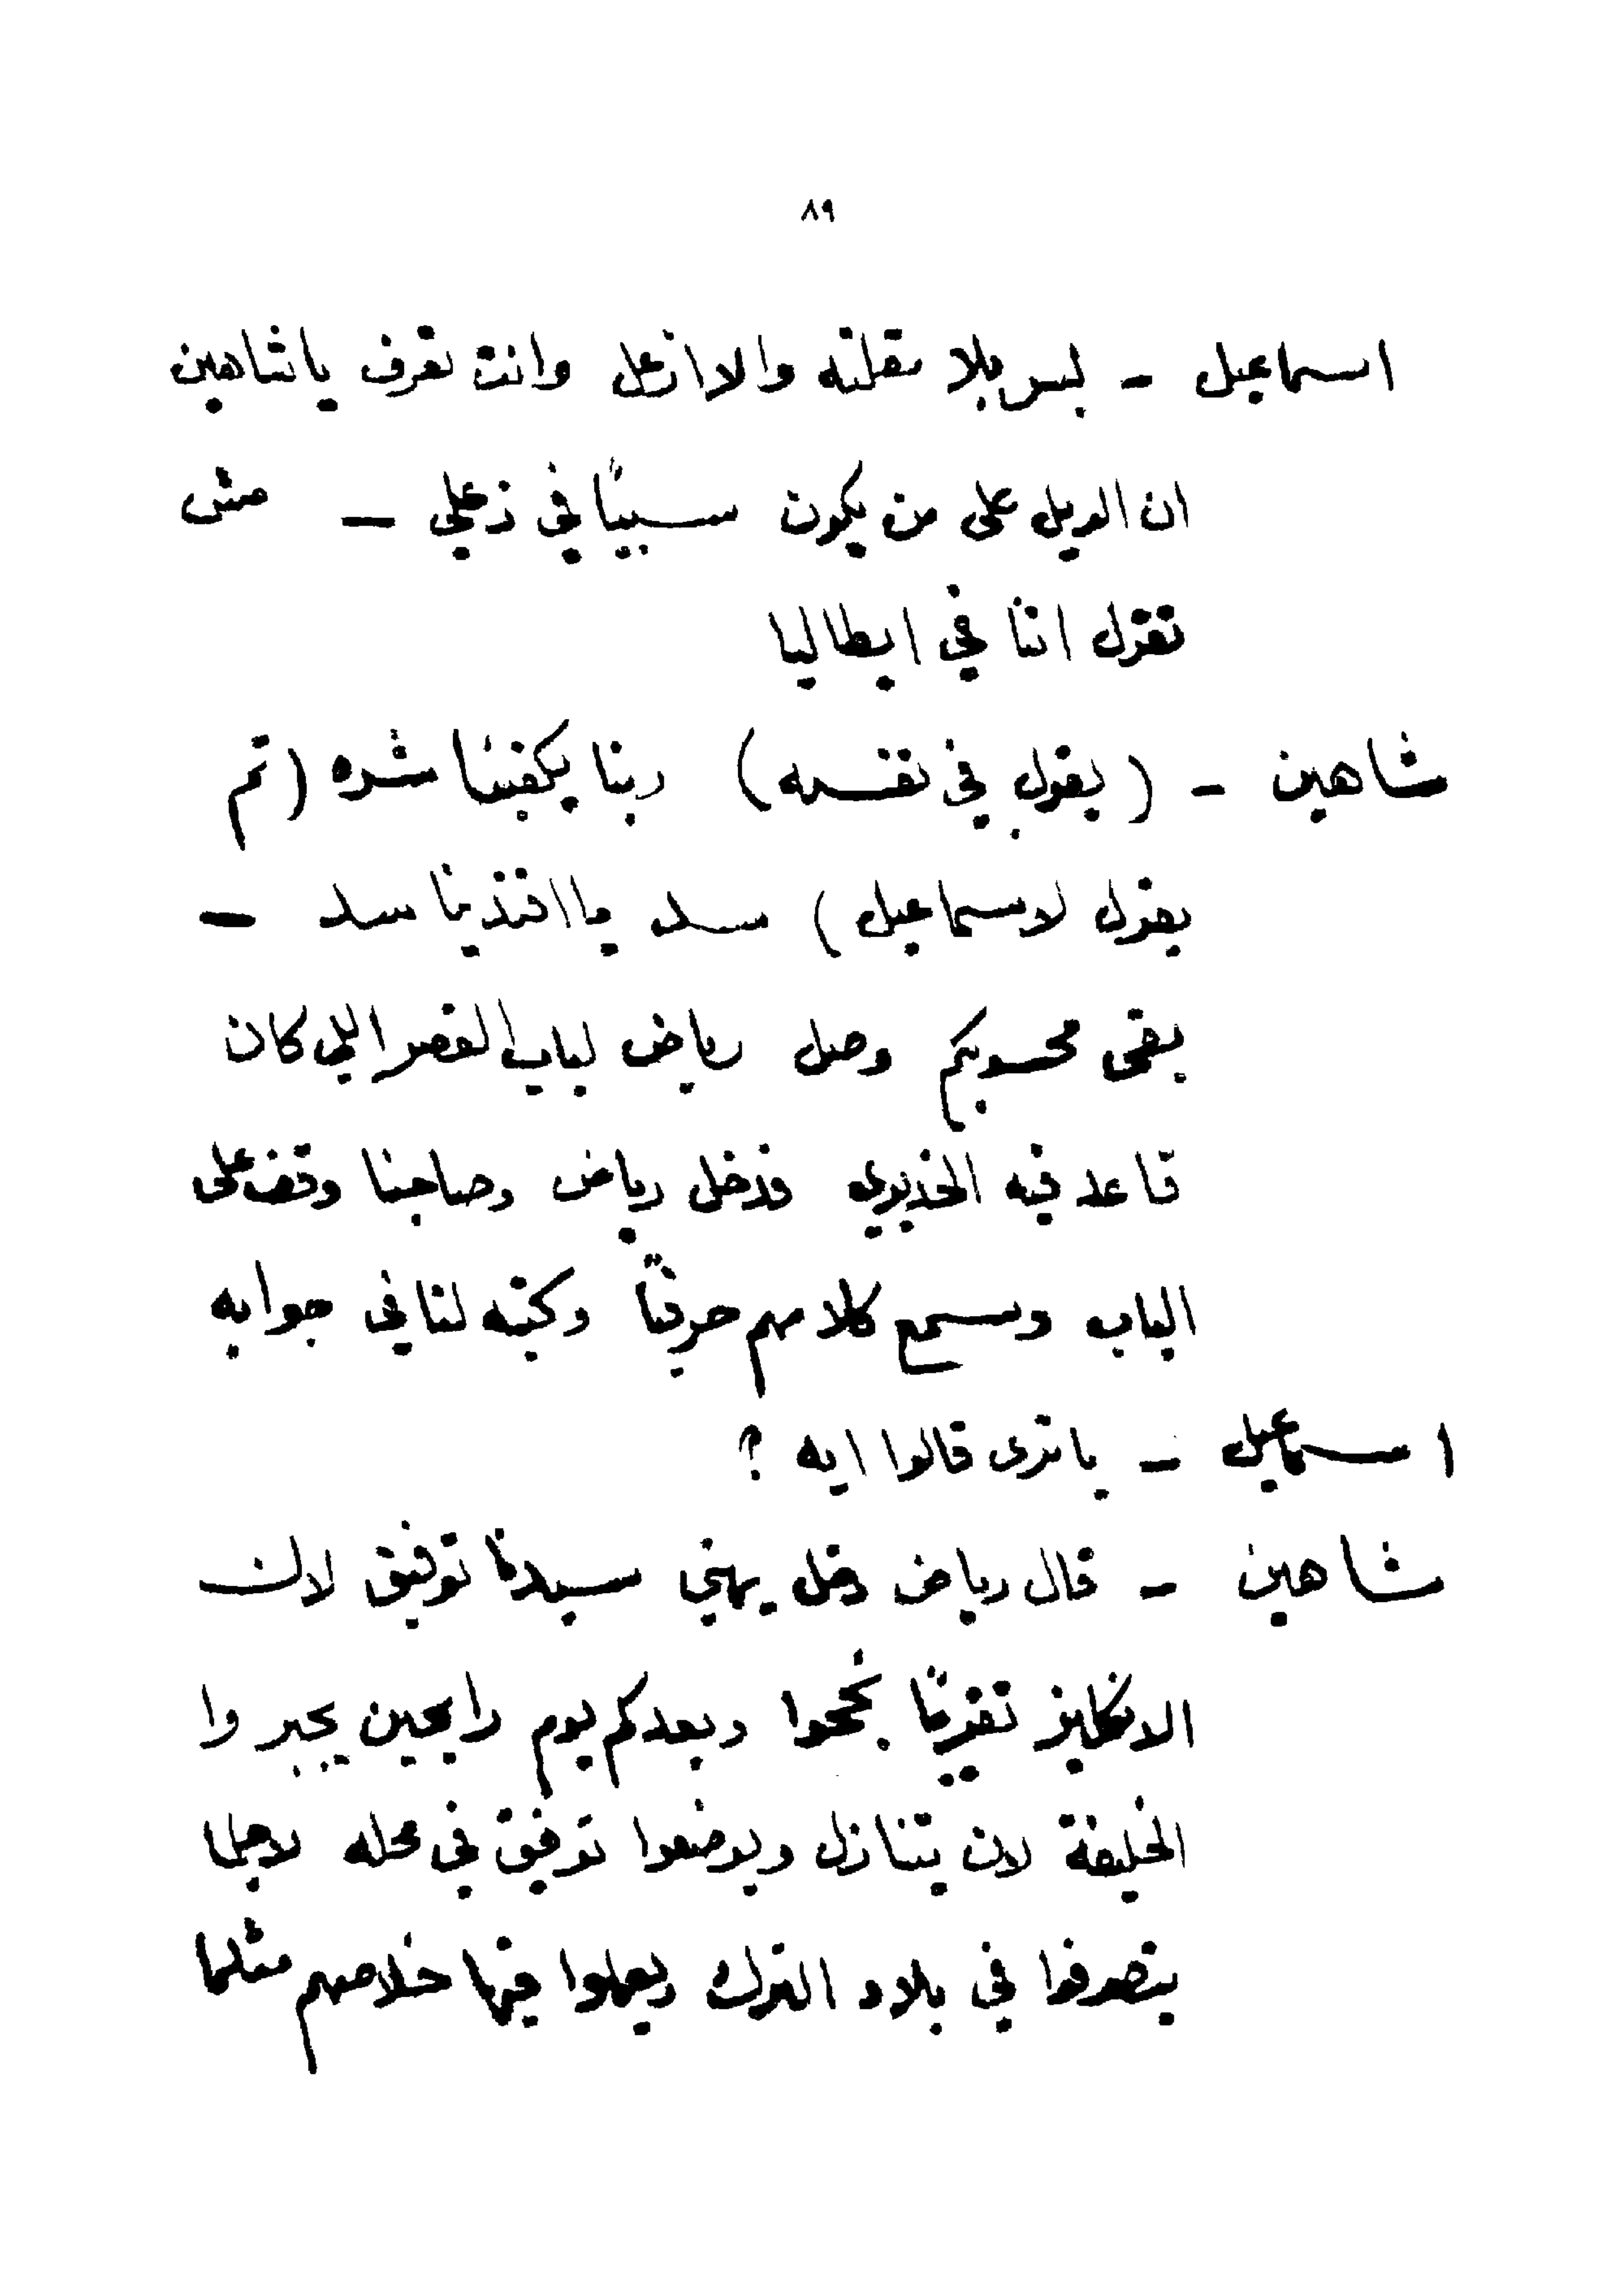 ٨٩
اسماعيل - بس بلا مقلته والا ازعل وانت تعرف ياشاهين
ان الويل على من يكون سببًا في زعلي — مش
تقول اننا في ايطاليا
شاهين - (يقول في نفسه) ربنا يكفينا شره (ثم
يقول لاسماعيل) سد يا افندينا سد —
بقى محسوبكم وصل رياض لباب القصر اللي كان
قاعد فيه الخديوي فدخل رياض وصاحبنا وقف على
الباب وسمع كلامهم حرفيًا وكتبه لنا في جوابه
اسماعيل - ياترى قالوا ايه ؟
شاهين - قال رياض دخل يهني سيدنا توفيق لان
الانكليز تقريبًا نجحوا وبعد كم يوم رايحين يجبروا
الخليفة لان يتنازل ويوضعوا توفيق في محله لاجلما
يتصرفوا في بلاد الترك ويعملوا فيها خلاصهم مثلما